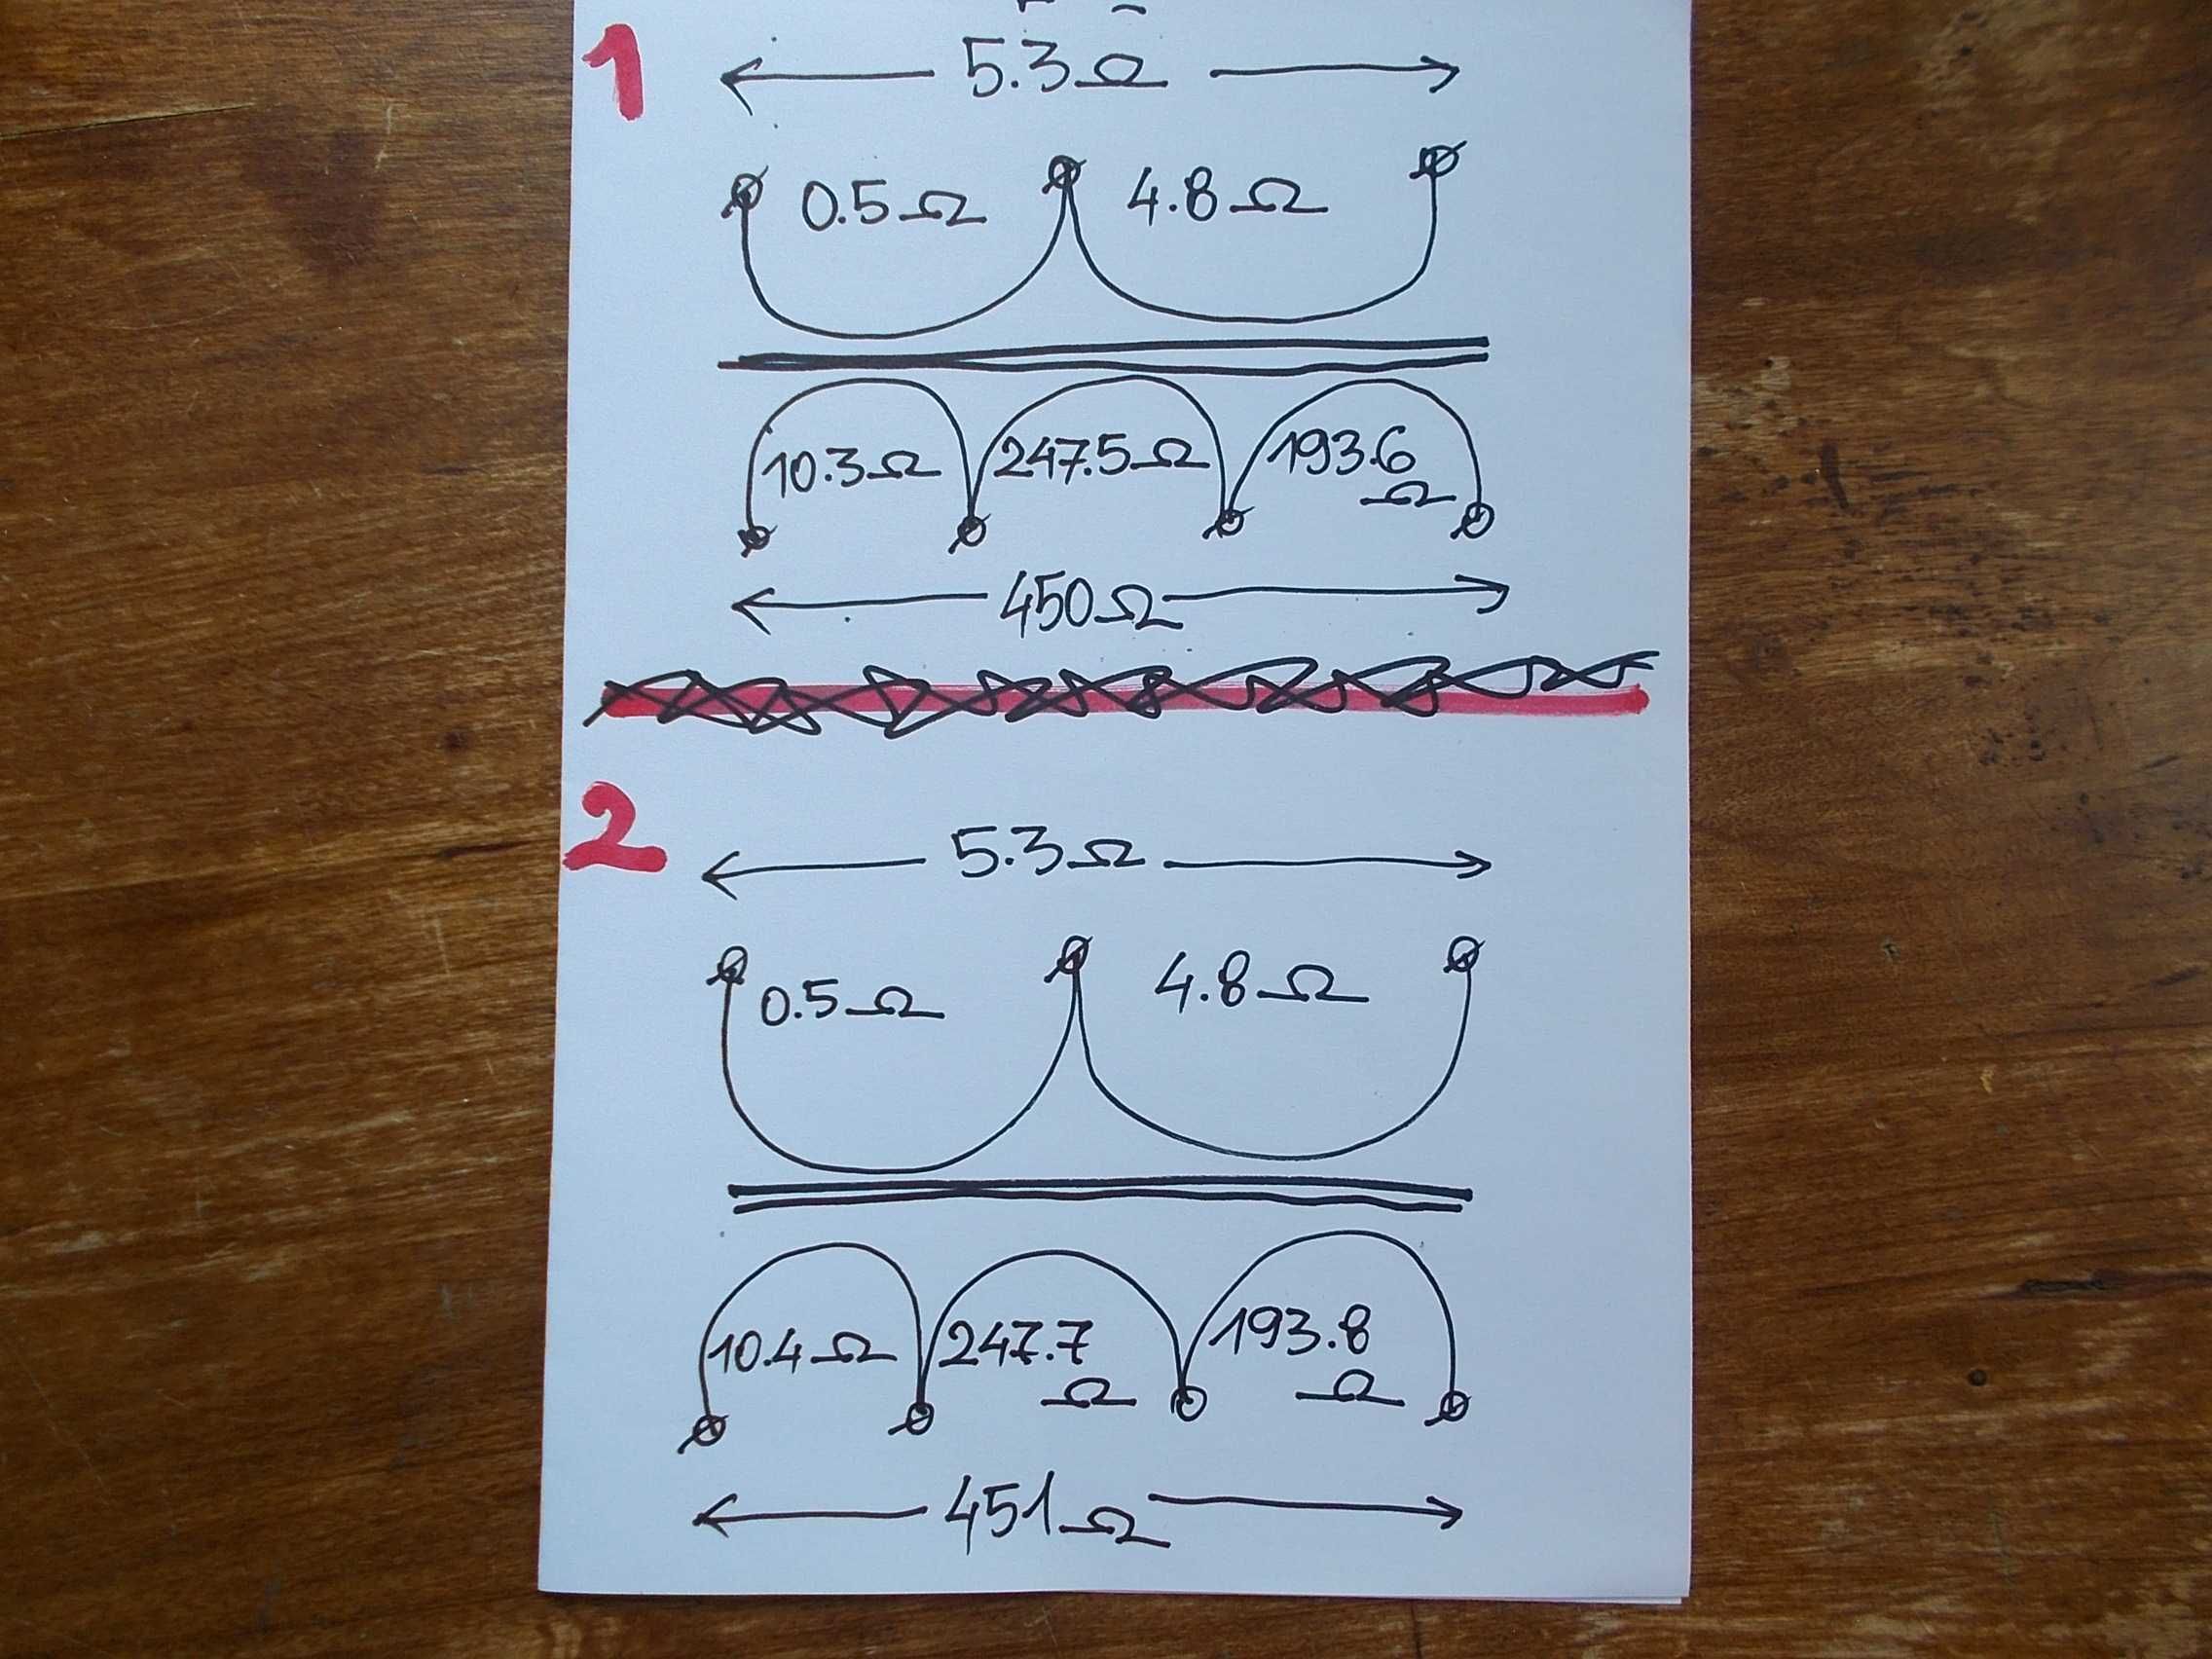 1
5.3Ω
0.5Ω 4.8Ω
10.3Ω 247.5Ω 193.6
Ω
450Ω
2
5.3Ω
0.5Ω 4.8Ω
10.4Ω 247.7 193.8
Ω Ω
451Ω